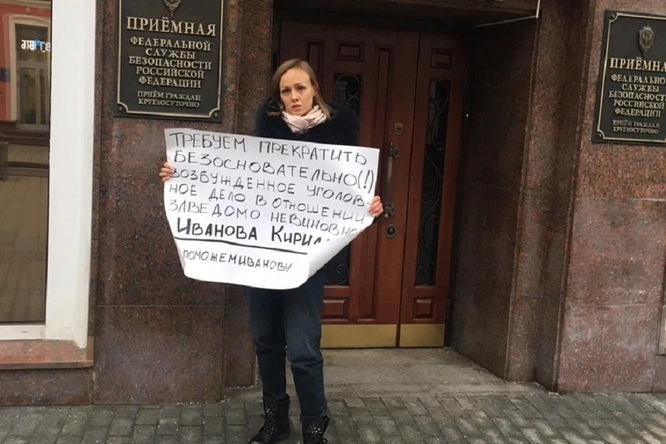 ПРИЁМНАЯ
ФЕДЕРАЛЬНОЙ
СЛУЖБЫ
БЕЗОПАСНОСТИ
РОССИЙСКОЙ
ФЕДЕРАЦИИ
ПРИЁМ ГРАЖДАН
КРУГЛОСУТОЧНО
ТРЕБУЕМ ПРЕКРАТИТЬ
БЕЗОСНОВАТЕЛЬНО(!)
ВОЗБУЖДЕННОЕ УГОЛОВ-
НОЕ ДЕЛО В ОТНОШЕНИИ
ЗАВЕДОМО
ИВАНОВА
ПОМОЖЕМИВАНОВУ
ПРИЁМНАЯ
ФЕДЕРАЛЬНОЙ
СЛУЖБЫ
БЕЗОПАСНОСТИ
РОССИЙСКОЙ
ФЕДЕРАЦИИ
ПРИЁМ ГРАЖДАН
КРУГЛОСУТОЧНО